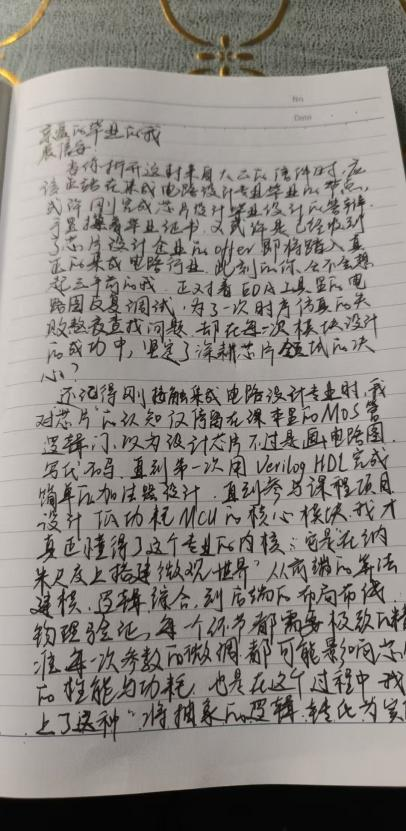 No
Date
亲爱的毕业的我
展信舒!
当你拆开这封来自大二的信件时,应
该正站在集成电路设计专业毕业的节点,
或许刚完成芯片设计毕业设计的答辩
手里握着毕业证书,又或许是已经收到
了芯片设计企业的offer即将踏入真
正的集成电路行业,此刻的你,会不会想
起三年前的我,正对着EDA工具里的电
路图反复调试,为了一次时序仿真的失
败整夜查找问题,却在每一次模块设计
的成功中,坚定了深耕芯片领域的决
心?
还记得刚接触集成电路设计专业时,我
对芯片的认知仅停留在课本里的MOS管
逻辑门,以为设计芯片不过是画电路图
写代码,直到第一次用Verilog HDL完成
简单的加法器设计,直到参与课程项目
设计低功耗MCU的核心模块,我才
真正懂得了这个专业的内核:它是在纳
米尺度上搭建微观世界"从前端的算法
建模,逻辑综合,到后端的布局布线
物理验证,每一个环节都需要极致的精
准,每一次参数的微调都可能影响芯
的性能与功耗,也是在这个过程中,我
上了这种"将抽象的逻辑,转化为实